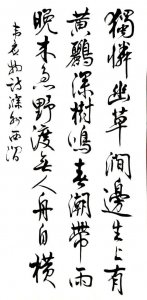 獨憐幽草澗邊生上有
黃鸝深樹鳴春潮帶雨
晚来急野渡無人舟自橫
韦應物詩滁州西澗